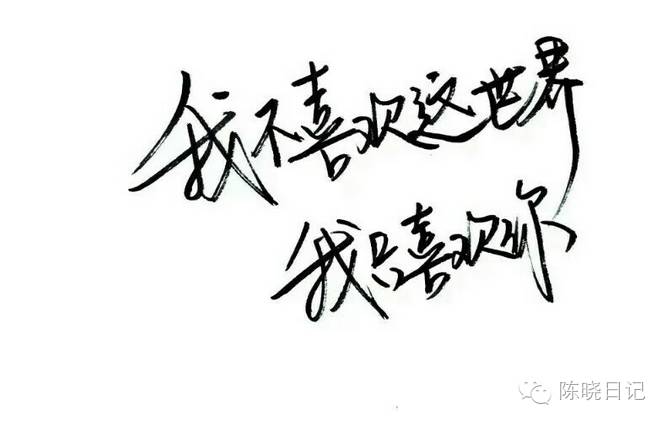 我不喜欢这世界
我只喜欢你
陈晓日记